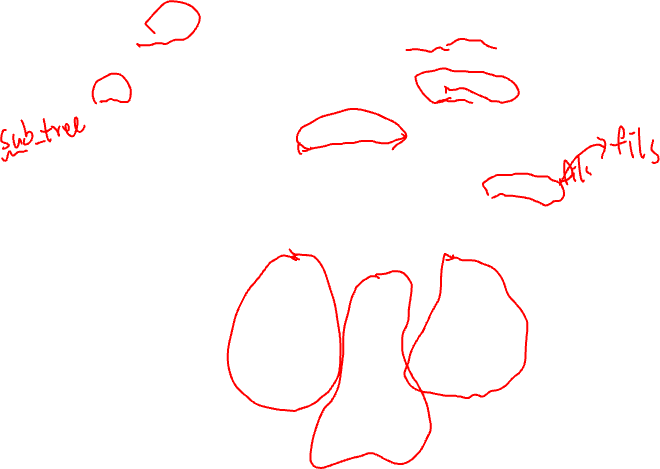 sub_tree
fils
fils